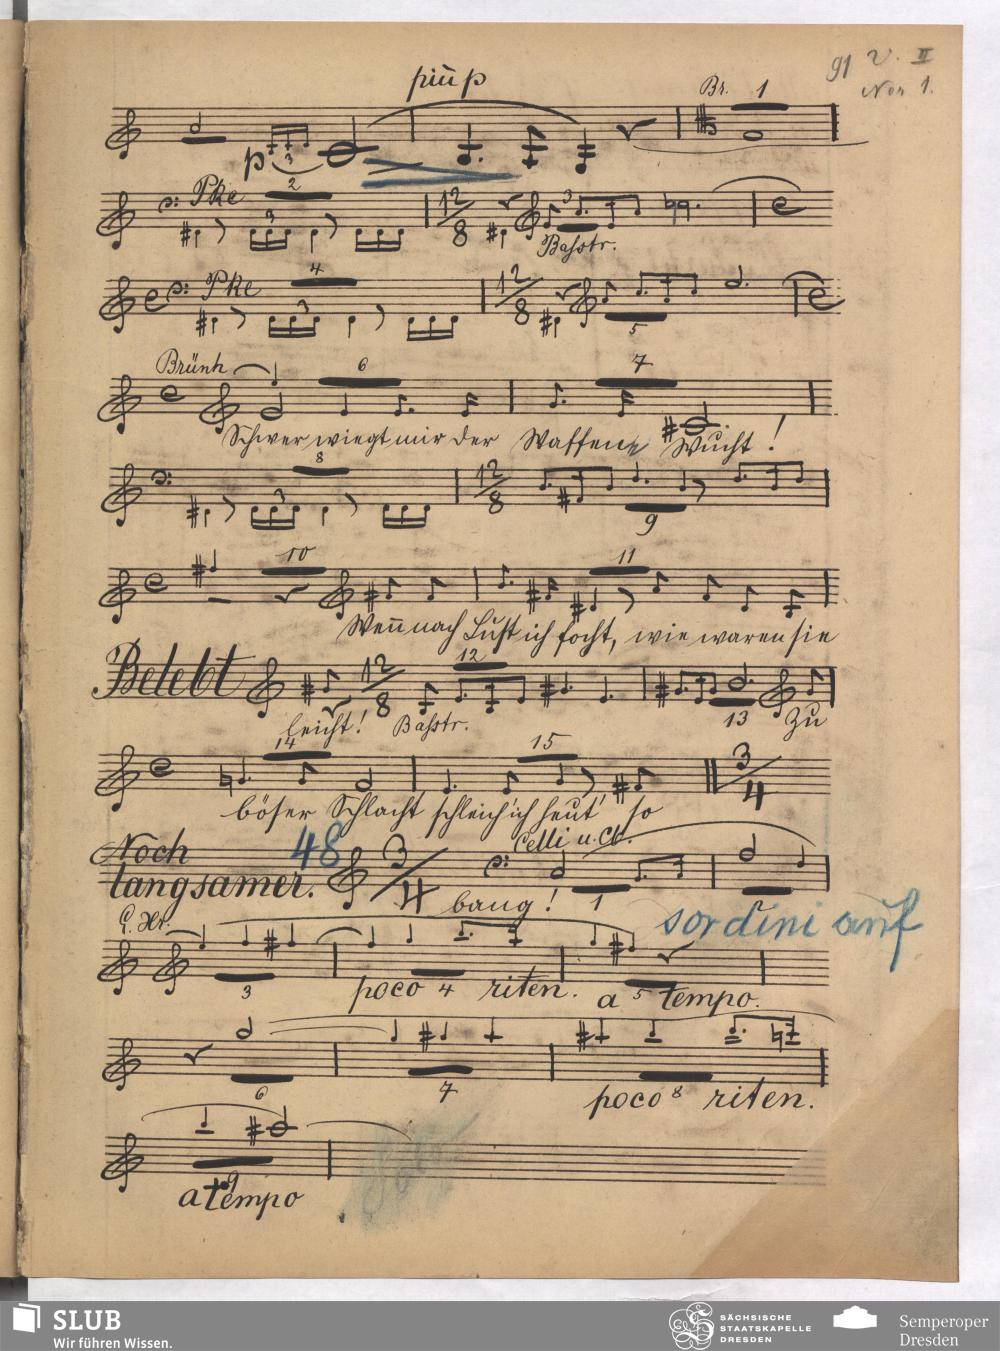 91 V. II
Nor 1.
più p
Br. 1
p 3
Pke 2 3 12/8 3
Baſstr.
Pke 4 3 12/8 5
Brünh 6 7
Schwer wiegt mir der Waffen Wucht!
8 3 12/8 9
10 11
Weñ nach Lust ich focht, wie waren sie
Belebt 12/8 12
leicht! Baſstr. 13 Zu
14 15 3/4
böser Schlacht schleich' ich heut' so
Noch langsamer. 48 3/4 Celli u. Cb.
bang! 1 2
sordini auf
E. Hr.
3 poco 4 riten. a 5 tempo.
6 7 poco 8 riten.
9
a tempo
SLUB
Wir führen Wissen.
SÄCHSISCHE
STAATSKAPELLE
DRESDEN
Semperoper
Dresden